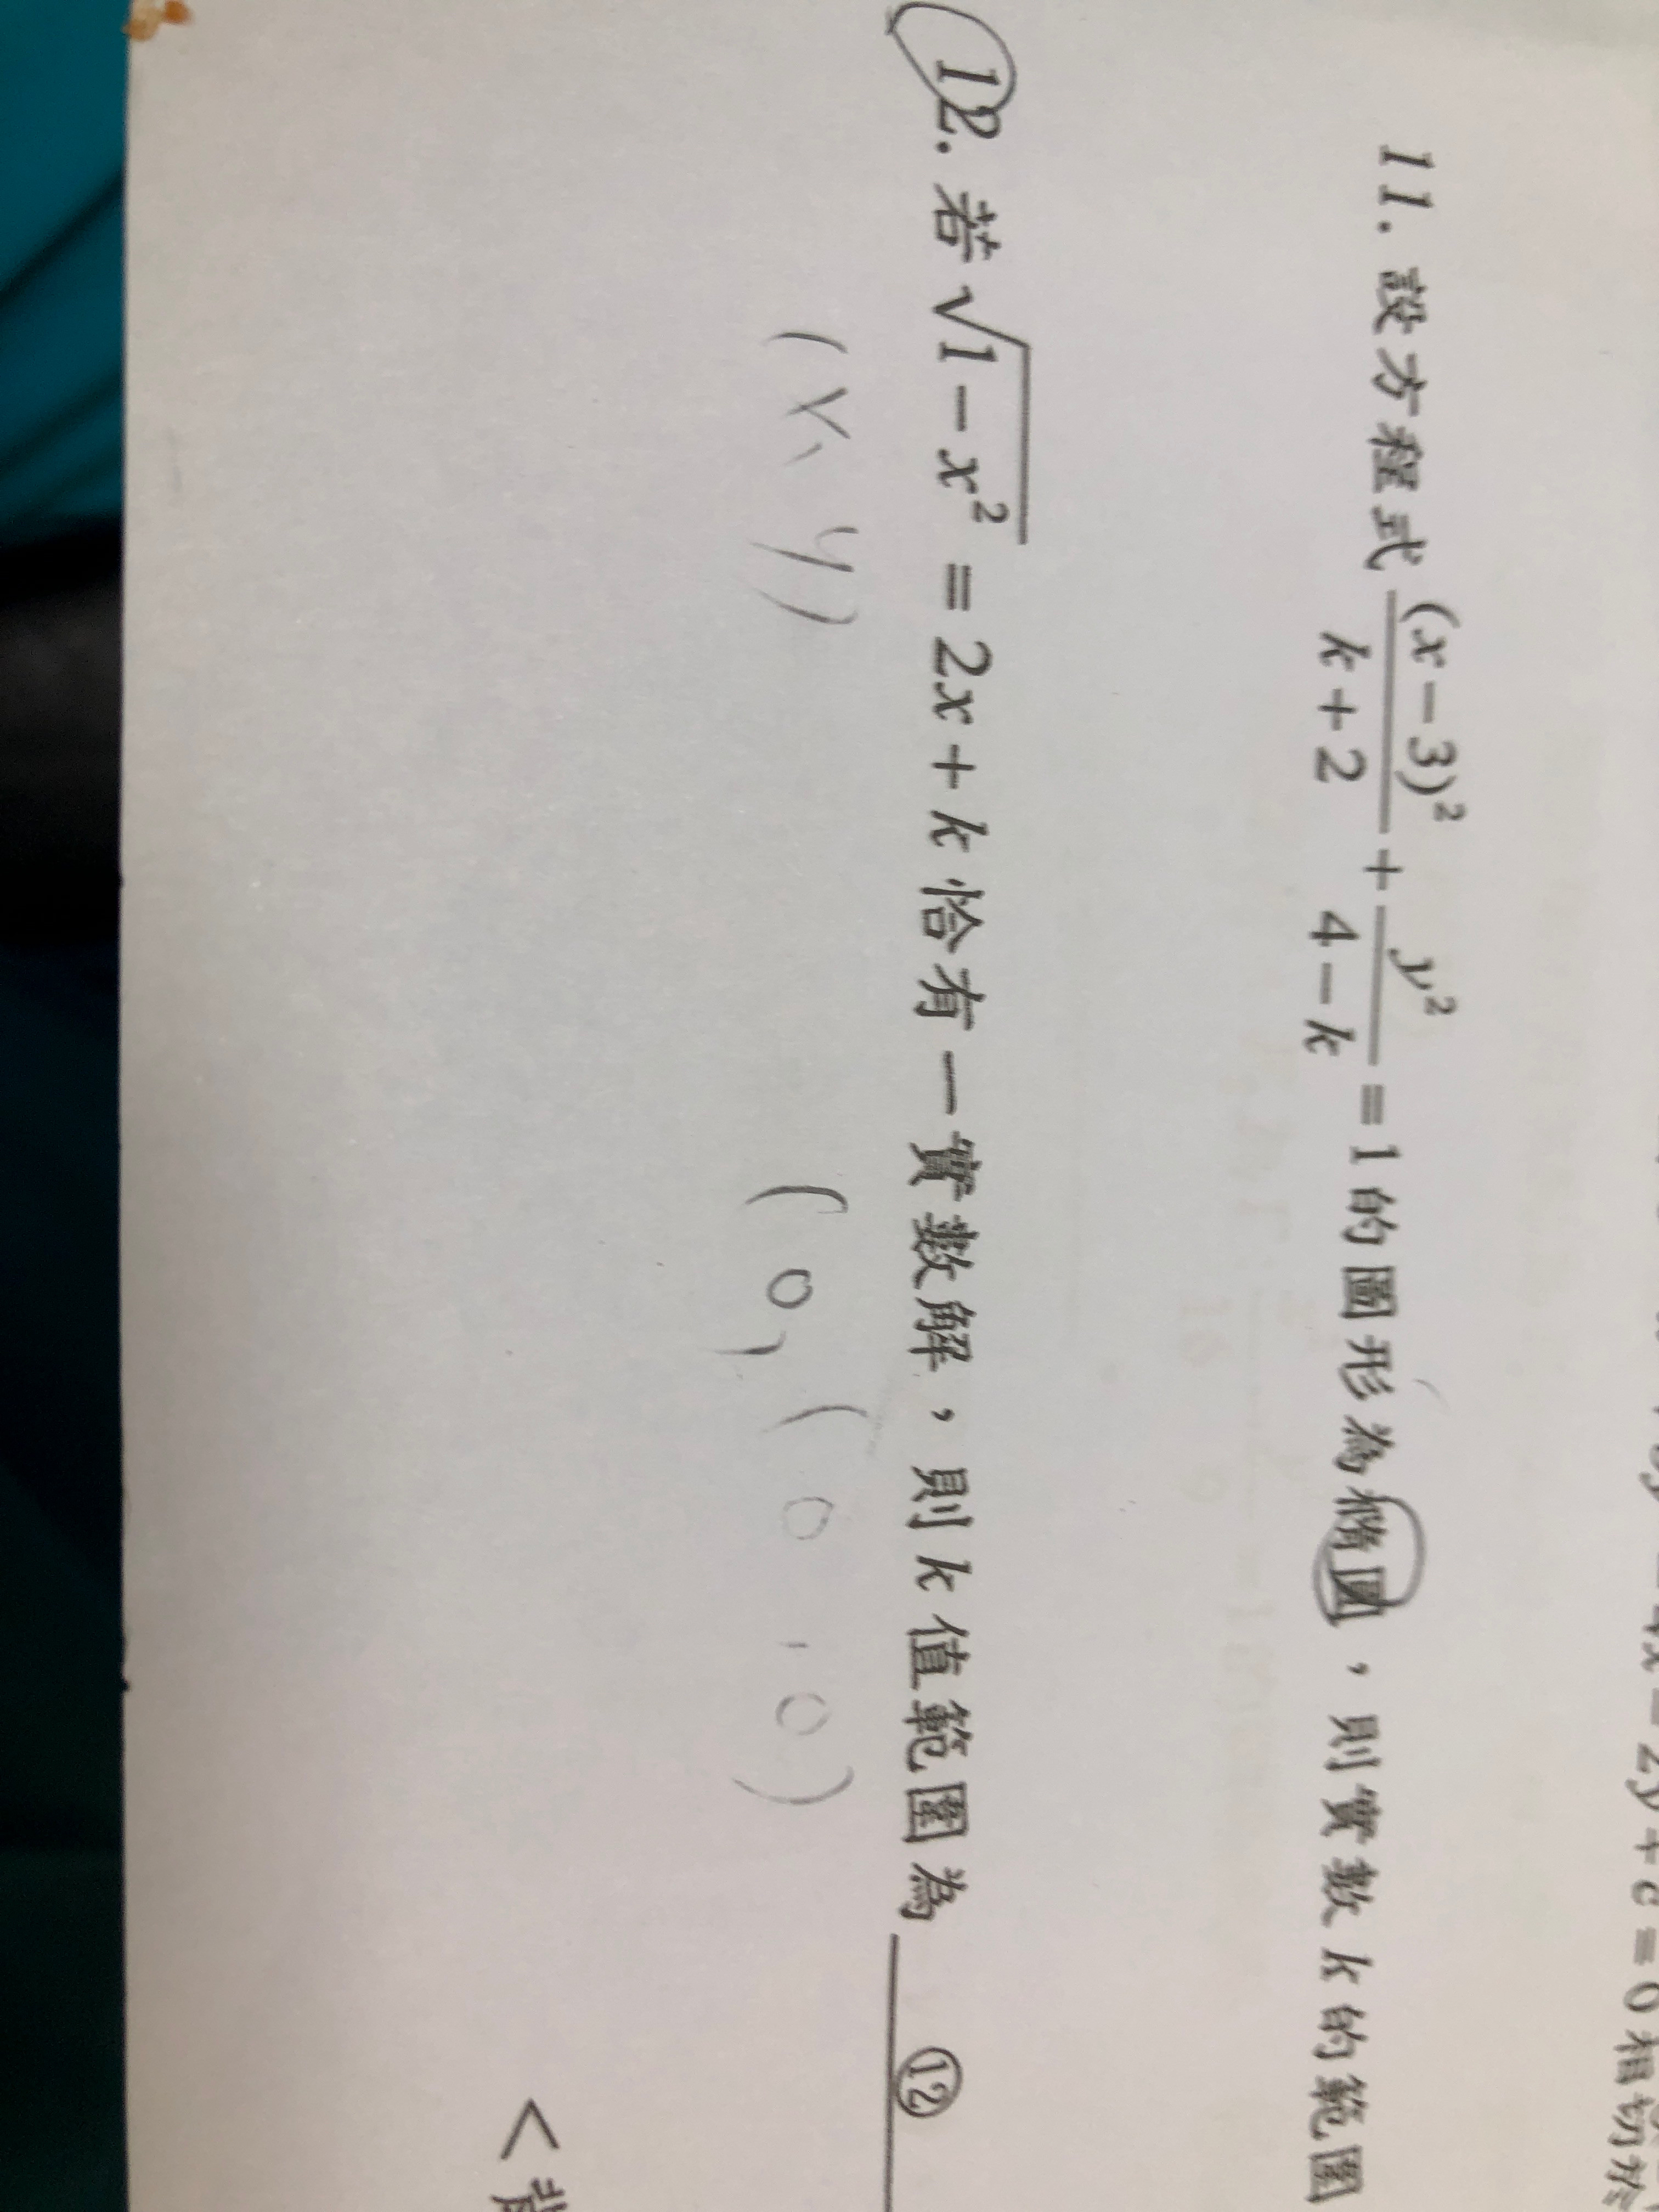 4x − 2y + c = 0 相切於
11. 設方程式 (x−3)²/(k+2) + y²/(4−k) = 1 的圖形為橢圓，則實數 k 的範圍
12. 若 √(1−x²) = 2x + k 恰有一實數解，則 k 值範圍為 ⑫
(x, y) (0, (0, 0)
<背